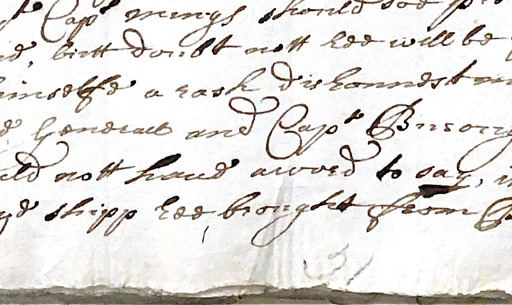 t Capt mings should soe
butt doubt nott hee will be
himselfe a rash dishonnest m
Generall and Capt
uld nott have a word to say, i
yd shipp hee brought from